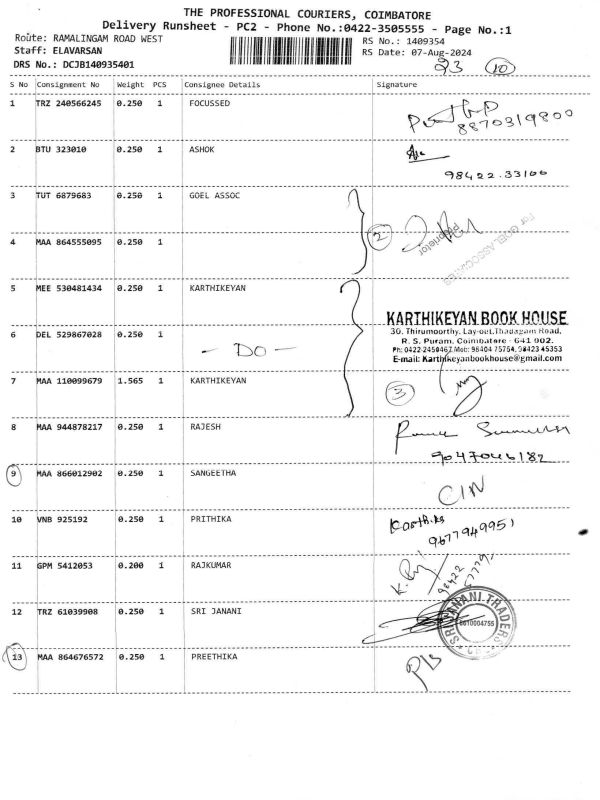 THE PROFESSIONAL COURIERS, COIMBATORE
Delivery Runsheet - PC2 - Phone No.:0422-3505555 - Page No.:1
Route: RAMALINGAM ROAD WEST
RS No.: 1409354
Staff: ELAVARSAN
RS Date: 07-Aug-2024
DRS No.: DCJB140935401
93 10
S No Consignment No Weight PCS Consignee Details Signature
1 TRZ 240566245 0.250 1 FOCUSSED
8870319800
2 BTU 323010 0.250 1 ASHOK
98422.33166
3 TUT 6879683 0.250 1 GOEL ASSOC
For GOEL ASSOCIATES
2
Proprietor
4 MAA 864555095 0.250 1
5 MEE 530481434 0.250 1 KARTHIKEYAN
KARTHIKEYAN BOOK HOUSE
30, Thirumoorthy, Lay-out, Thadagam Road,
6 DEL 529867028 0.250 1
R. S. Puram, Coimbatore - 641 002.
- DO -
Ph: 0422-2450467 Mob: 98404 75754, 98423 45353
E-mail: Karthikeyanbookhouse@gmail.com
7 MAA 110099679 1.565 1 KARTHIKEYAN
3
8 MAA 944878217 0.250 1 RAJESH
9047046182
9 MAA 866012902 0.250 1 SANGEETHA
C/N
10 VNB 925192 0.250 1 PRITHIKA
9677949951
11 GPM 5412053 0.200 1 RAJKUMAR
98422
12 TRZ 61039908 0.250 1 SRI JANANI
SRI JANANI TRADERS
8610004755
CBE
13 MAA 864676572 0.250 1 PREETHIKA